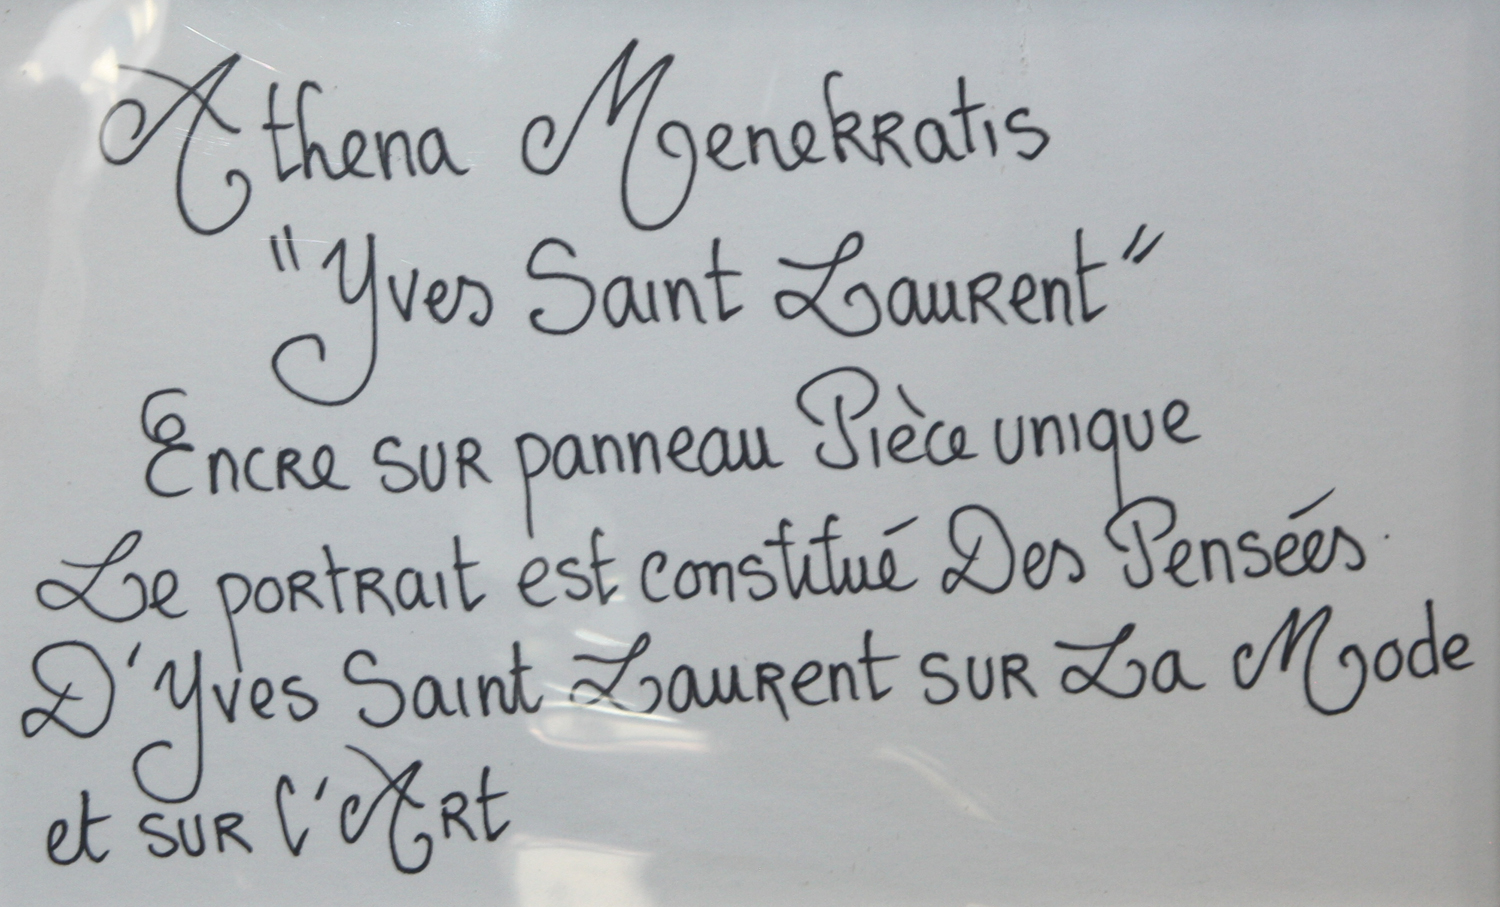 Athena Menekratis
"Yves Saint Laurent"
Encre sur panneau Pièce unique
Le portrait est constitué Des Pensées
D'Yves Saint Laurent sur La Mode
et sur l'Art